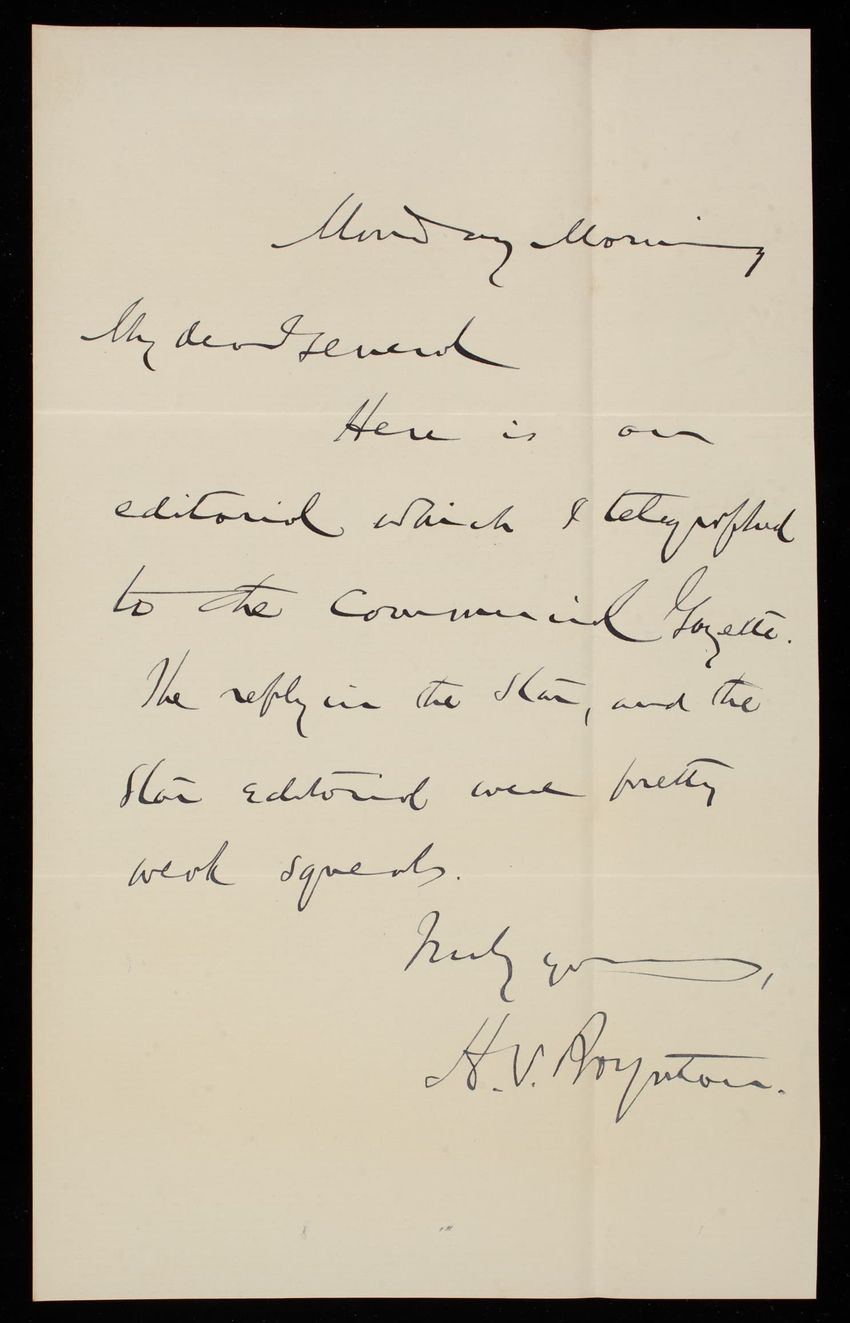 Monday Morning
My dear General
Here is an
editorial which I telegraphed
to the Commercial Gazette.
The reply in the Star, and the
Star editorial were pretty
weak squeals.
Truly yours,
H. V. Boynton.